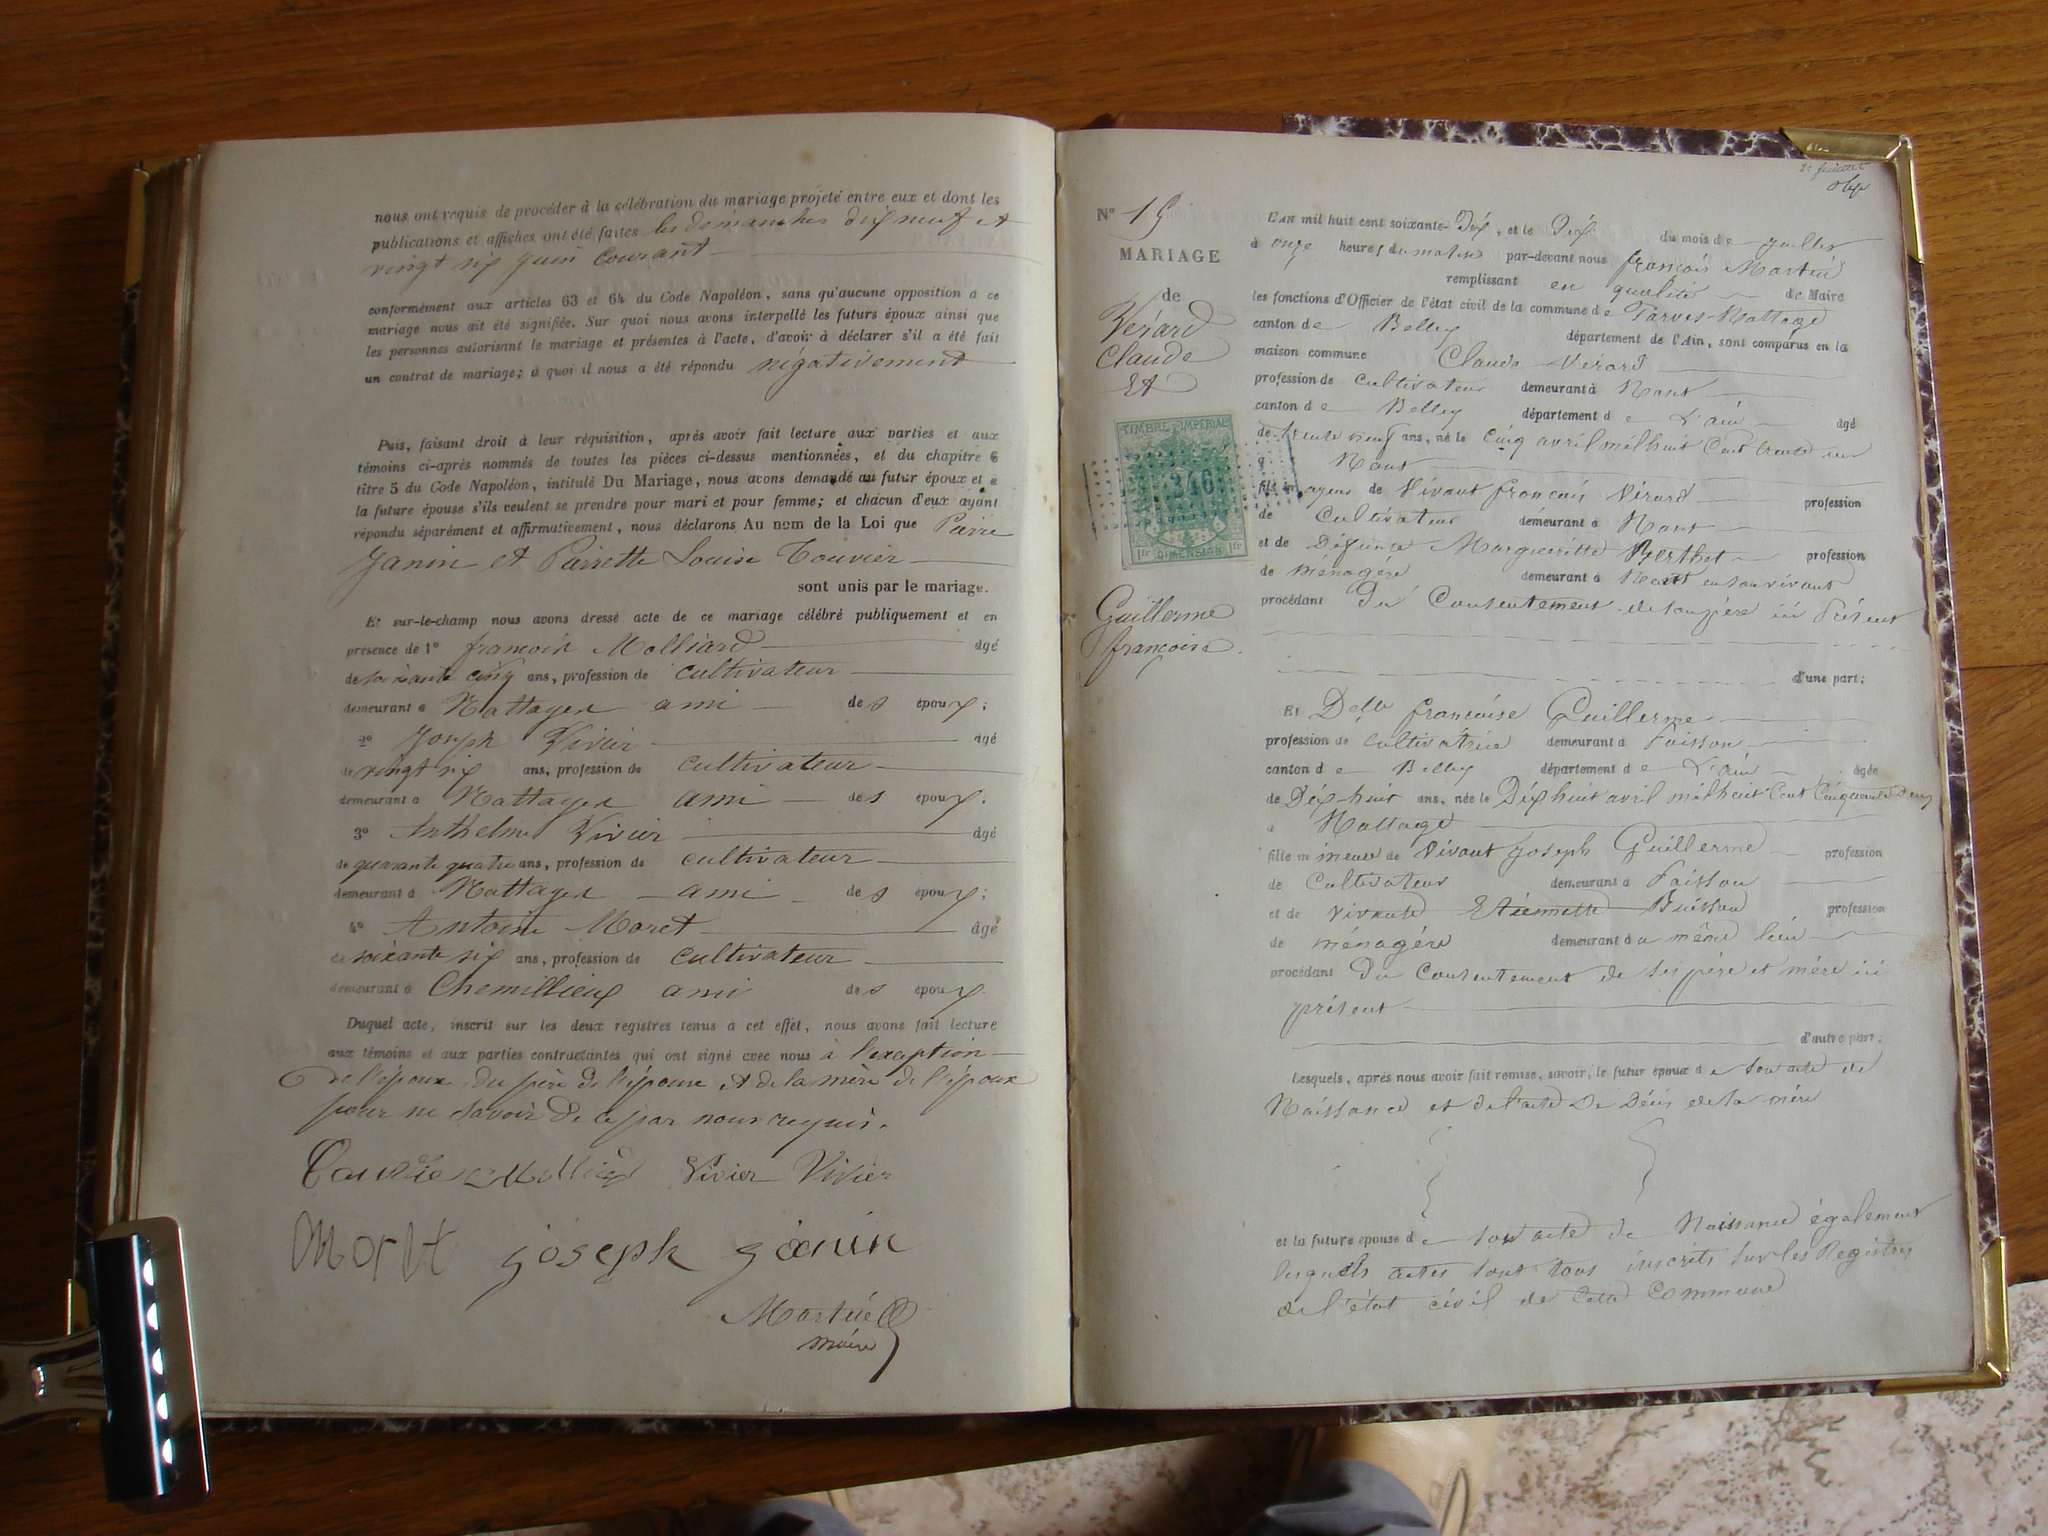 nous ont requis de procéder à la célébration du mariage projeté entre eux et dont les
publications et affiches ont été faites les dimanches dix neuf et
vingt six juin courant
conformément aux articles 63 et 64 du Code Napoléon, sans qu'aucune opposition à ce
mariage nous ait été signifiée. Sur quoi nous avons interpellé les futurs époux ainsi que
les personnes autorisant le mariage et présentes à l'acte, d'avoir à déclarer s'il a été fait
un contrat de mariage; à quoi il nous a été répondu négativement
Puis, faisant droit à leur réquisition, après avoir fait lecture aux parties et aux
témoins ci-après nommés de toutes les pièces ci-dessus mentionnées, et du chapitre 6
titre 5 du Code Napoléon, intitulé Du Mariage, nous avons demandé au futur époux et à
la future épouse s'ils veulent se prendre pour mari et pour femme; et chacun d'eux ayant
répondu séparément et affirmativement, nous déclarons Au nom de la Loi que Pierre
Janin et Pierrette Louise Touvier
sont unis par le mariage.
Et sur-le-champ nous avons dressé acte de ce mariage célébré publiquement et en
présence de 1° françois Molliard âgé
de soixante cinq ans, profession de cultivateur
demeurant à Nattages ami des époux;
2° Joseph Vivier âgé
de vingt six ans, profession de cultivateur
demeurant à Nattages ami des époux.
3° Anthelme Vivier âgé
de quarante quatre ans, profession de cultivateur
demeurant à Nattages ami des époux;
4° Antoine Moret âgé
de soixante six ans, profession de cultivateur
demeurant à Chemillieu ami des époux
Duquel acte, inscrit sur les deux registres tenus à cet effet, nous avons fait lecture
aux témoins et aux parties contractantes qui ont signé avec nous à l'exception
de l'époux du père de l'épouse et de la mère de l'époux
pour ne savoir de ce par nous requis.
Vivier Vivier
joseph janin
Martin
maire
N° 15
MARIAGE
de
Vérard
Claude
Et
TIMBRE IMPÉRIAL
346
1fr DIMENSION 1fr
Guillerme
françoise
L'AN mil huit cent soixante-Dix, et le Dix du mois de juillet
à onze heures du matin par-devant nous françois Martin
remplissant en qualité de Maire
les fonctions d'Officier de l'état civil de la commune de Parves-Nattage
canton de Belley département de l'Ain, sont comparus en la
maison commune Claude Vérard
profession de cultivateur demeurant à Nant
canton de Belley département de L'ain âgé
de trente neuf ans, né le cinq avril mil huit Cent trente un
à Nant
fils majeur de Vivant françois Vérard profession
de cultivateur demeurant à Nant
et de Défunte Margueritte Berthet profession
de ménagère demeurant à Nant en son vivant
procédant Du Consentement de son père ici Présent
d'une part;
Et Delle françoise Guillerme
profession de cultivatrice demeurant à Faisson
canton de Belley département de L'ain âgée
de Dix-huit ans, née le Dix huit avril mil huit Cent Cinquante Deux
à Nattage
fille mineure de Vivant Joseph Guillerme profession
de Cultivateur demeurant à Faisson
et de vivante Etiennette Buisson profession
de ménagère demeurant au même lieu
procédant Du Consentement de ses père et mère ici
présent
d'autre part;
Lesquels, après nous avoir fait remise, savoir, le futur époux de son acte de
Naissance et de l'acte de Décès de la mère
et la future épouse de son acte de Naissance également
lesquels actes sont tous inscrits sur les Registres
de l'état civil de cette Commune